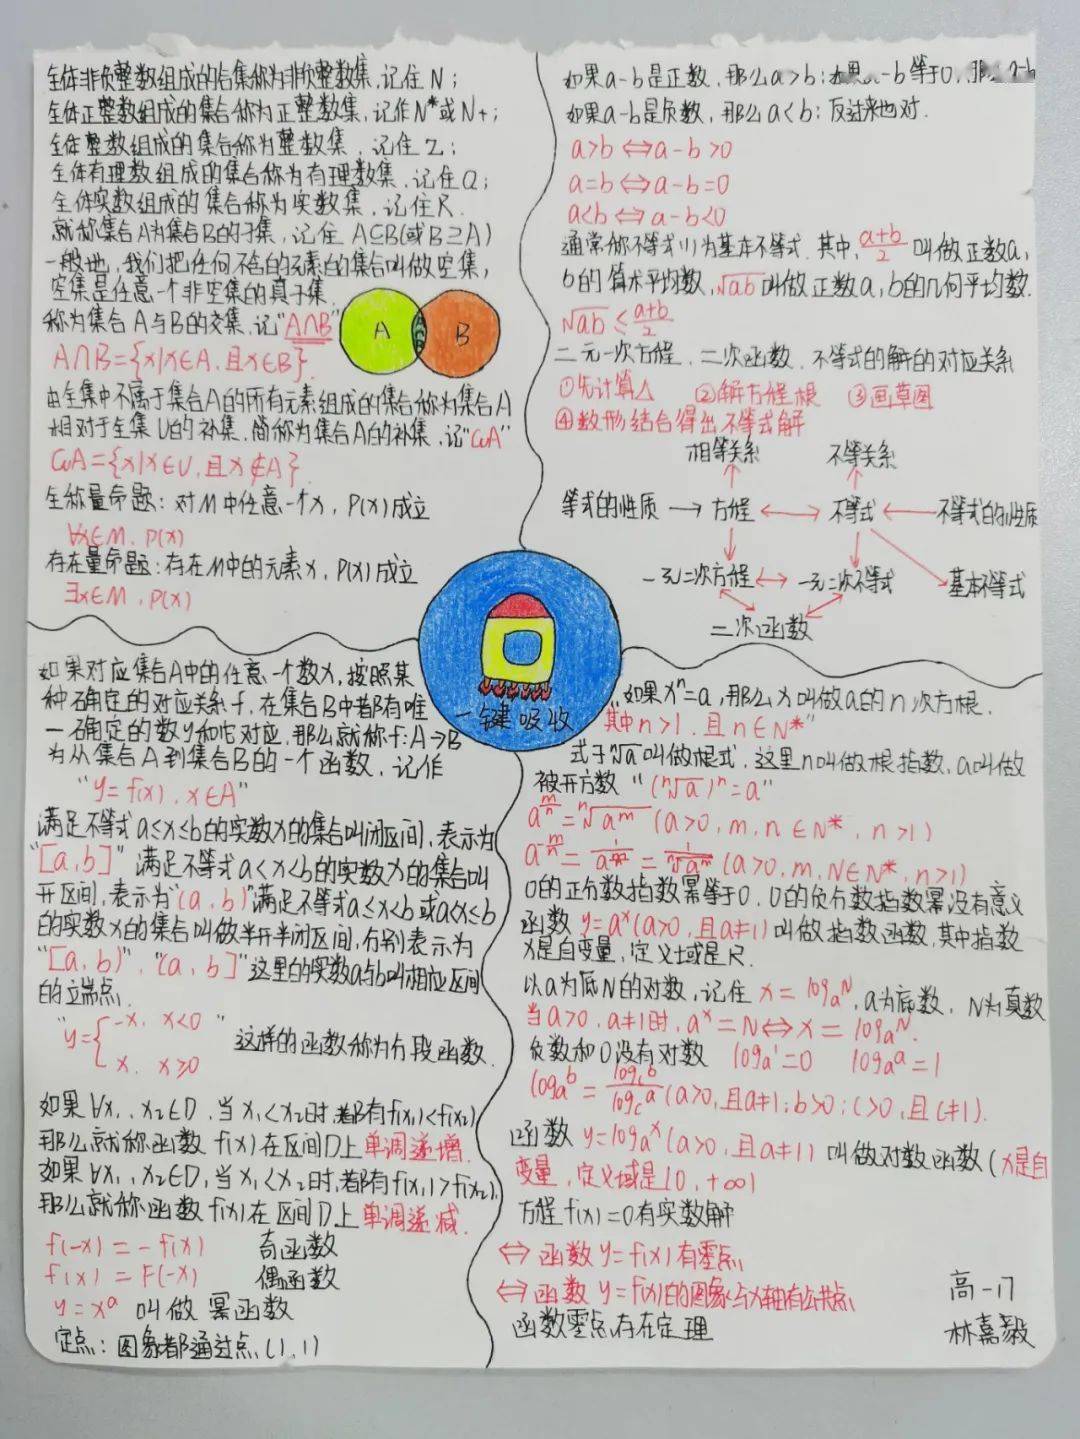 全体非负整数组成的合集称为非负整数集,记住N;
全体正整数组成的集合称为正整数集,记作N*或N+;
全体整数组成的集合称为整数集,记住Z;
全体有理数组成的集合称为有理数集,记住Q;
全体实数组成的集合称为实数集,记住R.
就称集合A为集合B的子集,记住 A⊆B(或B⊇A)
一般地,我们把任何不含的元素的集合叫做空集,
空集是任意一个非空集的真子集.
称为集合A与B的交集,记"A∩B"
A∩B={x|x∈A,且x∈B}.
A A∩B B
由全集中不属于集合A的所有元素组成的集合称为集合A
相对于全集U的补集,简称为集合A的补集,记"CuA"
CuA={x|x∈U,且x∉A}.
全称量命题:对M中任意一个x,P(x)成立
∀x∈M,P(x)
存在量命题:存在M中的元素x,P(x)成立
∃x∈M,P(x)
如果a-b是正数,那么a>b;如果a-b等于0,那么a=b
如果a-b是负数,那么a<b;反过来也对.
a>b⇔a-b>0
a=b⇔a-b=0
a<b⇔a-b<0
通常你不等式(1)为基本不等式.其中,(a+b)/2 叫做正数a,
b的算术平均数,√ab叫做正数a,b的几何平均数.
√ab≤(a+b)/2
二元一次方程,二次函数,不等式的解的对应关系
①先计算△ ②解方程根 ③画草图
④数形结合得出不等式解
相等关系 不等关系
等式的性质→方程↔不等式←不等式的性质
一元二次方程↔一元二次不等式 基本不等式
二次函数
一键吸收
如果对应集合A中的任意一个数x,按照某
种确定的对应关系f,在集合B中都有唯
一确定的数y和它对应,那么就称f:A→B
为从集合A到集合B的一个函数,记作
"y=f(x),x∈A"
满足不等式a≤x≤b的实数x的集合叫闭区间,表示为
"[a,b]" 满足不等式a<x<b的实数x的集合叫
开区间,表示为"(a,b)"满足不等式a≤x<b或a<x≤b
的实数x的集合叫做半开半闭区间,分别表示为
"[a,b)","(a,b]"这里的实数a与b叫相应区间
的立端点.
"y={-x, x<0
x, x≥0" 这样的函数称为分段函数.
如果∀x₁,x₂∈D,当x₁<x₂时,都有f(x₁)<f(x₂)
那么就称函数f(x)在区间D上单调递增.
如果∀x₁,x₂∈D,当x₁<x₂时,都有f(x₁)>f(x₂),
那么就称函数f(x)在区间D上单调递减.
f(-x)=-f(x) 奇函数
f(x)=F(-x) 偶函数
y=xᵃ 叫做幂函数
定点:图象都通过点(1,1)
如果xⁿ=a,那么x叫做a的n次方根.
"其中n>1,且n∈N*"
式于ⁿ√a叫做根式,这里n叫做根指数,a叫做
被开方数 "(ⁿ√a)ⁿ=a"
a^(m/n)=ⁿ√aᵐ(a>0,m,n∈N*,n>1)
a^(-m/n)=1/a^(m/n)=1/ⁿ√aᵐ(a>0,m,N∈N*,n>1)
0的正分数指数幂等于0,0的负分数指数幂没有意义
函数y=aˣ(a>0,且a≠1)叫做指数函数,其中指数
x是自变量,定义域是R.
以a为底N的对数,记住x=logaN,a为底数,N为真数
当a>0,a≠1时,aˣ=N⇔x=logaN.
负数和0没有对数 loga1=0 logaa=1
logab=logcb/logca(a>0,且a≠1;b>0;c>0,且c≠1).
函数y=logax(a>0,且a≠1)叫做对数函数(x是自
变量,定义域是(0,+∞)
方程f(x)=0有实数解
⇔函数y=f(x)有零点
⇔函数y=f(x)的图象与x轴有公共点
函数零点存在定理
高一17
林嘉毅